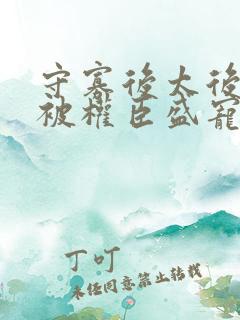 守寡後太後
被權臣盛寵
丁叮
未經同意禁止轉載